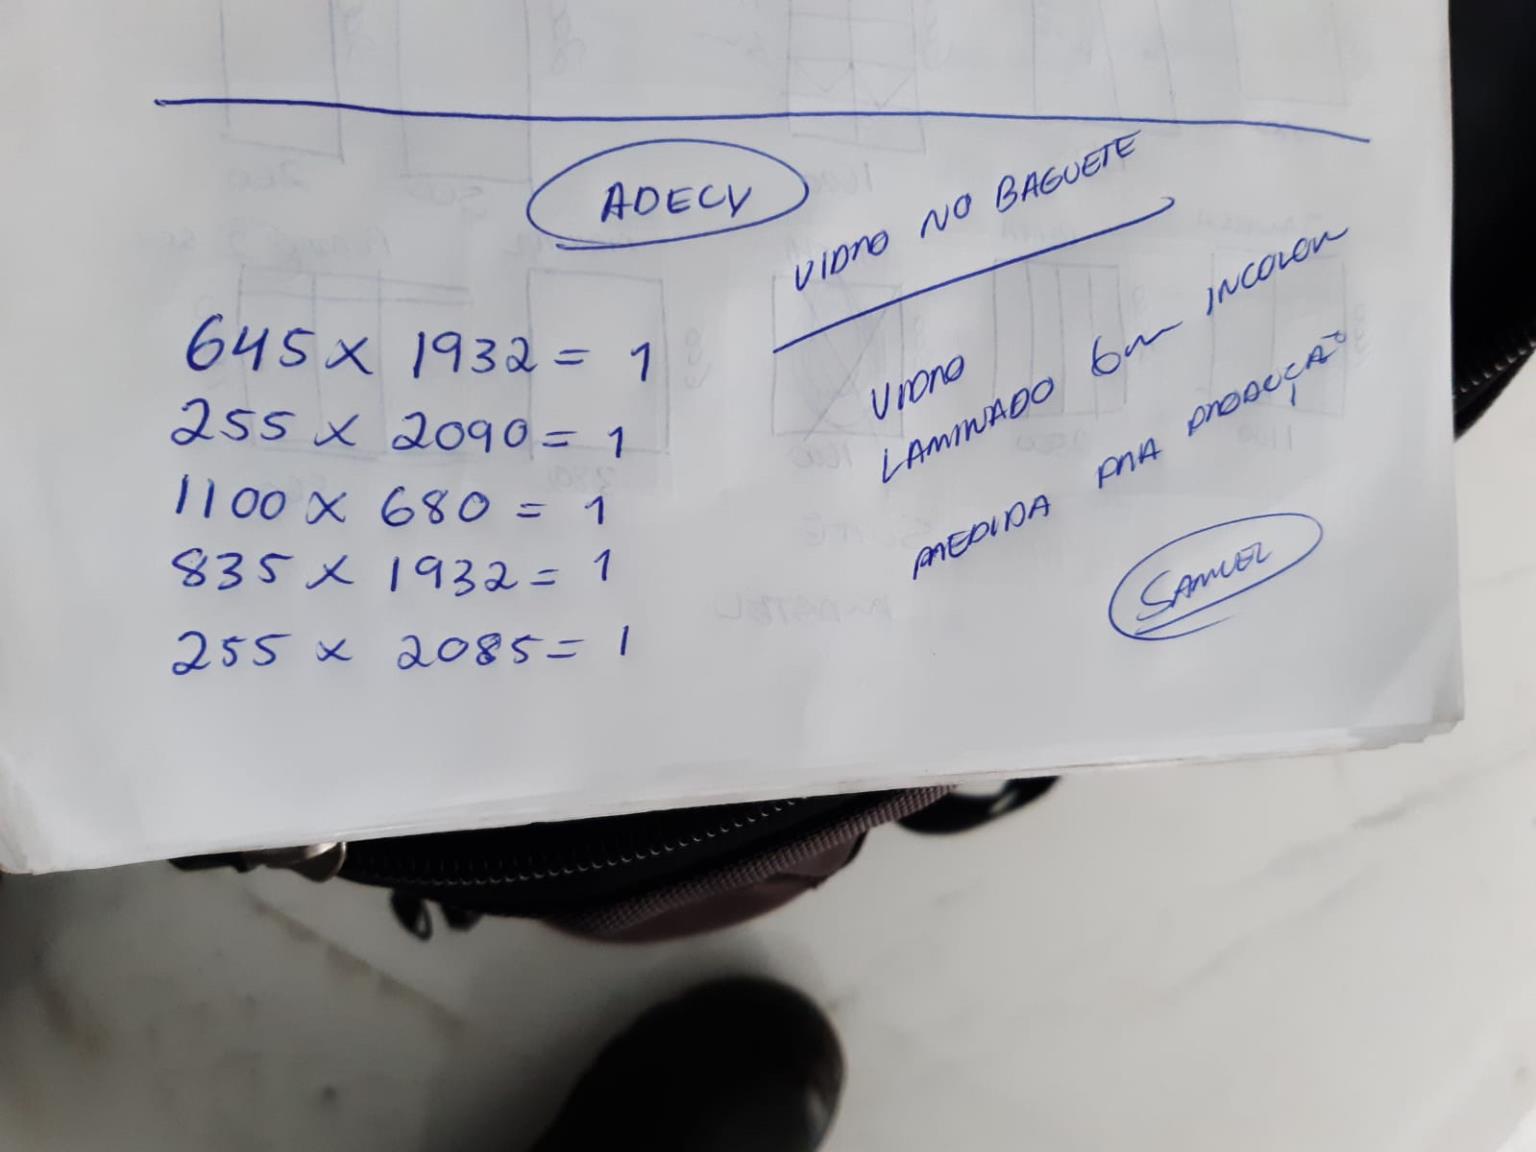 ADECY
VIDRO NO BAGUETE
645 x 1932 = 1
255 x 2090 = 1
1100 x 680 = 1
835 x 1932 = 1
255 x 2085 = 1
VIDRO
LAMINADO 6m INCOLOR
MEDIDA PRA PRODUÇÃO
SAMUEL